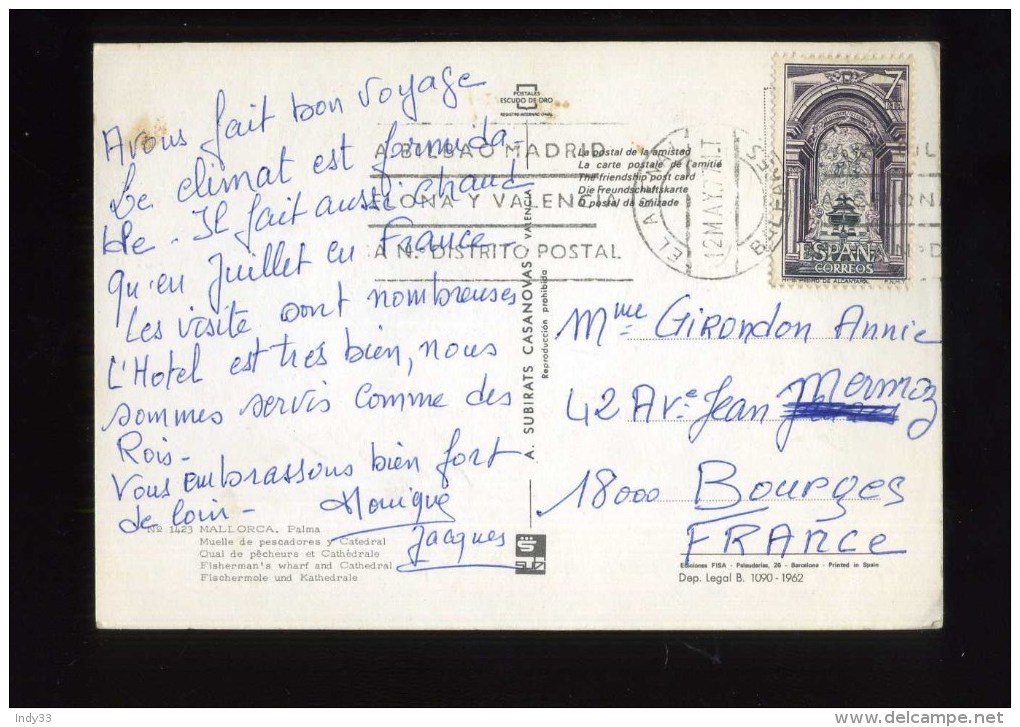 Avons fait bon voyage
Le climat est formida
ble - Il fait aussi chaud
qu'en Juillet en France
Les visite sont nombreuses
L'Hotel est très bien, nous
sommes servis comme des
Rois -
Vous embrassons bien fort
de loin - Monique
Jacques
Nº 1423 MALLORCA. Palma
Muelle de pescadores y Catedral
Quai de pêcheurs et Cathédrale
Fisherman's wharf and Cathedral
Fischermole und Kathedrale
POSTALES
ESCUDO DE ORO
A BILBAO MADRID
ELONA Y VALENCIA
A Nº DISTRITO POSTAL
La postal de la amistad
La carte postale de l'amitié
The friendship post card
Die Freundschaftskarte
O postal da amizade
A. SUBIRATS CASANOVAS VALENCIA
Reproducción prohibida
12 MAY
7 PTA
ESPAÑA
CORREOS
Mme Girondon Annie
42 Ave Jean Mermoz
18000 Bourges
FRANCE
SUB
Ediciones FISA - Palaudarias, 26 - Barcelona - Printed in Spain
Dep. Legal B. 1090 - 1962
Indy33
www.delcampe.net